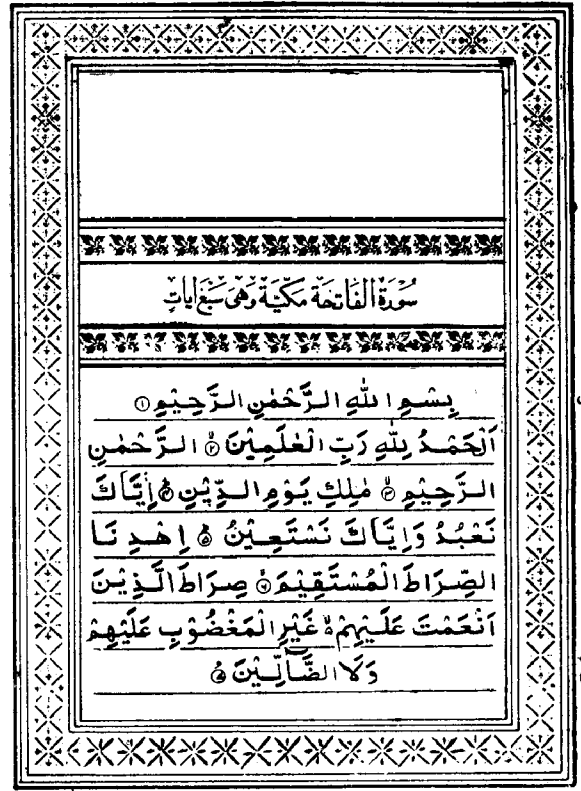 سُوْرَةُ الْفَاتِحَةِ مَكِّيَّةٌ وَهِيَ سَبْعُ اٰيَاتٍ
بِسْمِ اللّٰهِ الرَّحْمٰنِ الرَّحِيْمِ ۝۱
اَلْحَمْدُ لِلّٰهِ رَبِّ الْعٰلَمِيْنَ ۝۲ الرَّحْمٰنِ
الرَّحِيْمِ ۝۳ مٰلِكِ يَوْمِ الدِّيْنِ ۝۴ اِيَّاكَ
نَعْبُدُ وَاِيَّاكَ نَسْتَعِيْنُ ۝۵ اِهْدِنَا
الصِّرَاطَ الْمُسْتَقِيْمَ ۝۶ صِرَاطَ الَّذِيْنَ
اَنْعَمْتَ عَلَيْهِمْ ۙ غَيْرِ الْمَغْضُوْبِ عَلَيْهِمْ
وَلَا الضَّآلِّيْنَ ۝۷